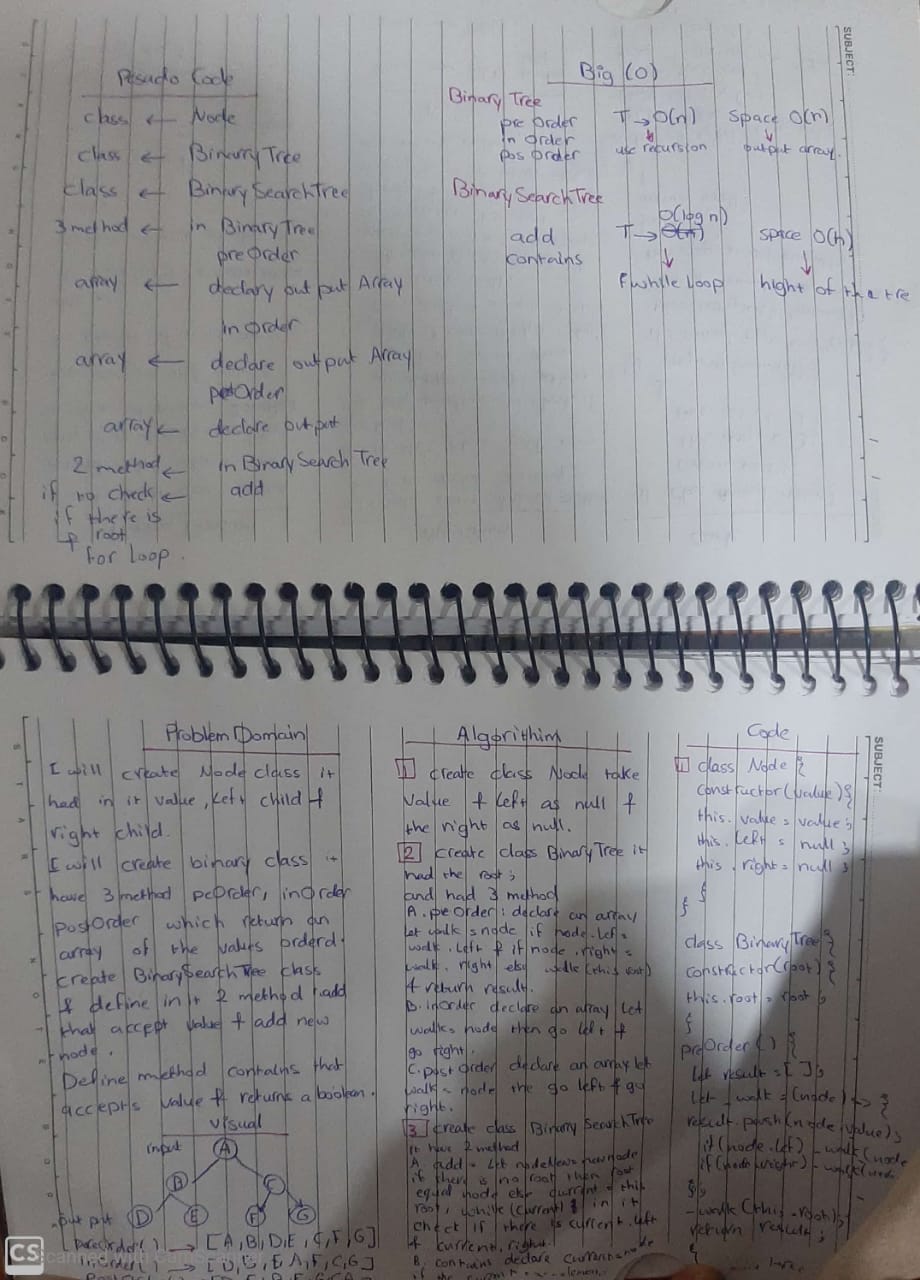 SUBJECT:
Pesudo Code
class ← Node
class ← BinarryTree
class ← BinarySearchTree
3 method ← in BinaryTree
preOrder
array ← declary out put Array
in order
array ← declare output Array
postOrder
array ← declare output
2 method ← in BinarySearch Tree
if no check ← add
if there is
root
for loop.
Big (O)
Binary Tree
pre order T → O(n) space O(n)
in order
pos order use recursion output array.
BinarySearchTree
O(log n)
add T → O(n) space O(h)
contains
while loop hight of the tre
SUBJECT:
Problem Domain
I will create Node class it
had in it value, left child &
right child.
I will create binary class it
have 3 method peOrder, inOrder
postOrder which return an
array of the values orderd.
create BinarySearchTree class
& define in it 2 method add
that accept value & add new
node.
Define method contains that
accepts value & returns a boolean.
Visual
input A
B C
D E F G
out put
[A, B, D, E, C, F, G]
Algorithim
1 create class Node take
value & left as null &
the right as null.
2 create class BinaryTree it
had the root;
and had 3 method
A. peOrder: declare an array
let walk = node if node.left =
walk.left & if node.right =
walk.right else walk (this.root)
& return result.
B. inOrder declare an array let
walk = node then go left &
go right.
C. post Order declare an array let
walk = node the go left & go
right.
3 create class Binary SearchTree
it have 2 method
A. add = let nodeNew = newnode
if there is no root then root
equal node else current = this
root, while (current) & in it
check if there is current.left
& current.right.
B. contains declare current = node
Code
1 class Node {
constructor(value){
this.value = value;
this.left = null;
this.right = null;
}
}
class BinaryTree {
constructor(root) {
this.root = root;
}
preOrder() {
let result = [];
let _walk = (node) => {
result.push(node.value);
if(node.left) _walk(node
if(node.right) _walk(node
};
_walk(this.root);
return result;
}
CS Scanned with CamScanner